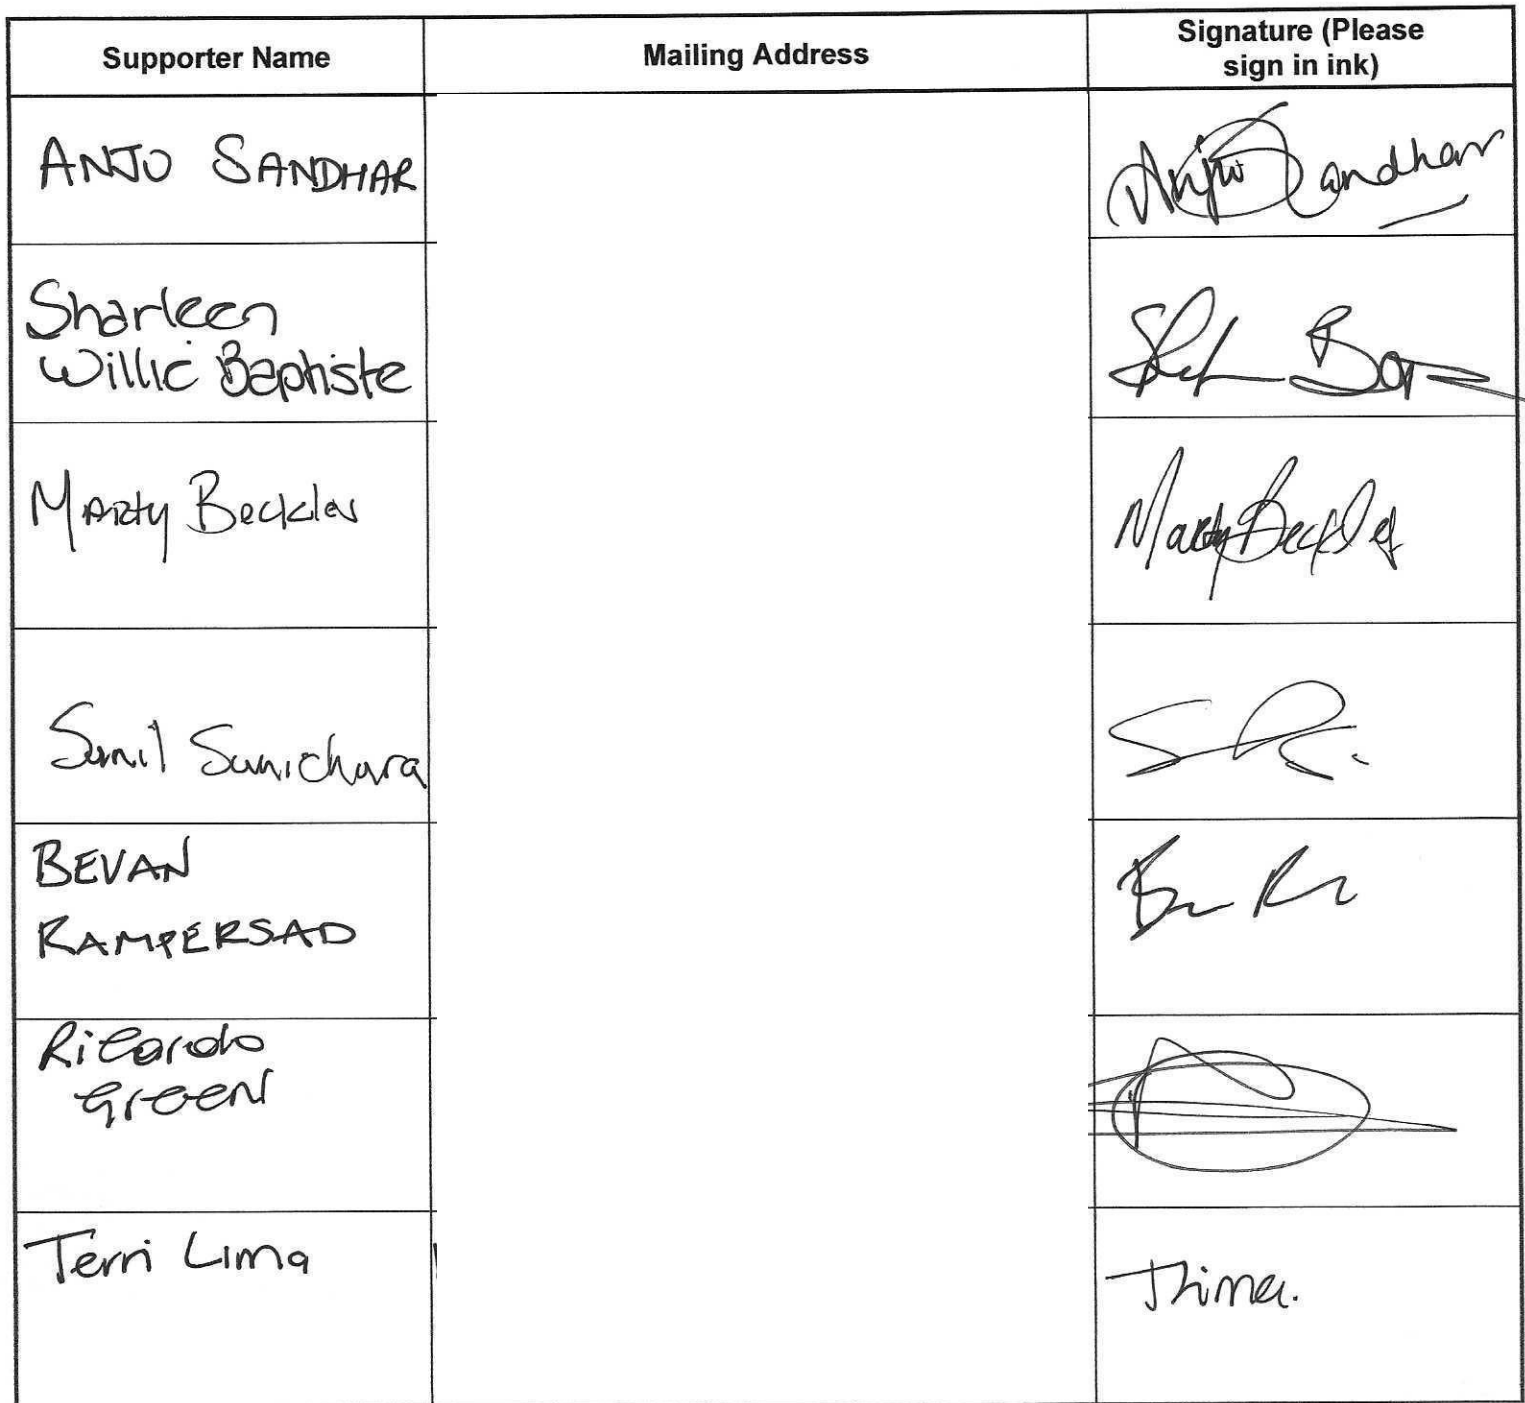 Supporter Name
Mailing Address
Signature (Please
sign in ink)
ANJU SANDHAR
Anju Sandhar
Sharleen
Willie Baptiste
Marty Beckles
Marty Beckles
Sunil Sunichara
BEVAN
RAMPERSAD
Ricardo
Green
Terri Lima
TLima.